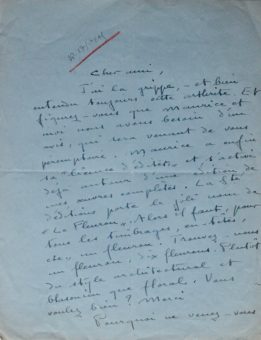 Cher ami,
J'ai la grippe, - et bien
entendu toujours cette arthrite. Et
figurez-vous que Maurice et
moi nous avons besoin d'un
avis, qui sera venant de vous
péremptoire. Maurice a enfin
sa "licence d'éditer" et s'active
déjà autour d'une édition de
mes œuvres complètes. La Sté
d'éditions porte le joli nom de
"Le Fleuron". Alors il faut, pour
tous les timbrages, en-têtes,
etc, un fleuron. Trouvez-nous
un fleuron, dix fleurons. Plutôt
du style architectural et
blasonien que floral. Vous
voulez bien? Merci
Pourquoi ne venez-vous